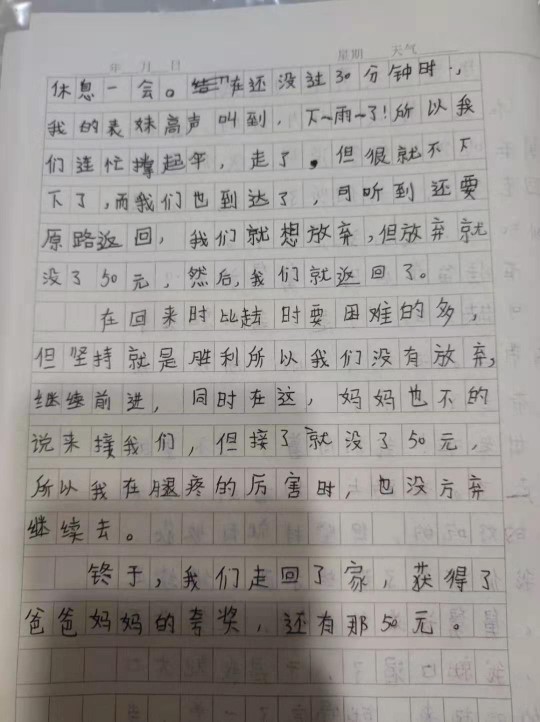 年 月 日 星期 天气
休息一会。在还没过30分钟时,
我的表妹高声叫到,下~雨~了!所以我
们连忙撑起伞,走了。但很就不下
下了,而我们也到达了,可听到还要
原路返回,我们就想放弃,但放弃就
没了50元,然后,我们就返回了。
在回来时比去时要困难的多,
但坚持就是胜利所以我们没有放弃,
继续前进,同时在这,妈妈也不的
说来接我们,但接了就没了50元,
所以我在腿疼的厉害时,也没方弃
继续去。
终于,我们走回了家,获得了
爸爸妈妈的夸奖,还有那50元。